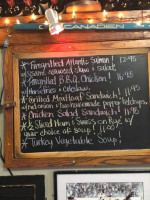 CANADIEN
* Farmgrilled Atlantic Salmon! 12.95
w/ seaweed slaw & salad.
* Farmgrilled B.B.Q. Chicken! 11.95
w/ fries & coleslaw.
* Grilled Meatloaf Sandwich! 11.95
w/ onion & two homemade pepper ketchups.
* Chicken Salad Sandwich! 11.95
* Sliced Ham & Swiss on Rye w/
your choice of soup! 10.95
* Turkey Vegetable Soup!